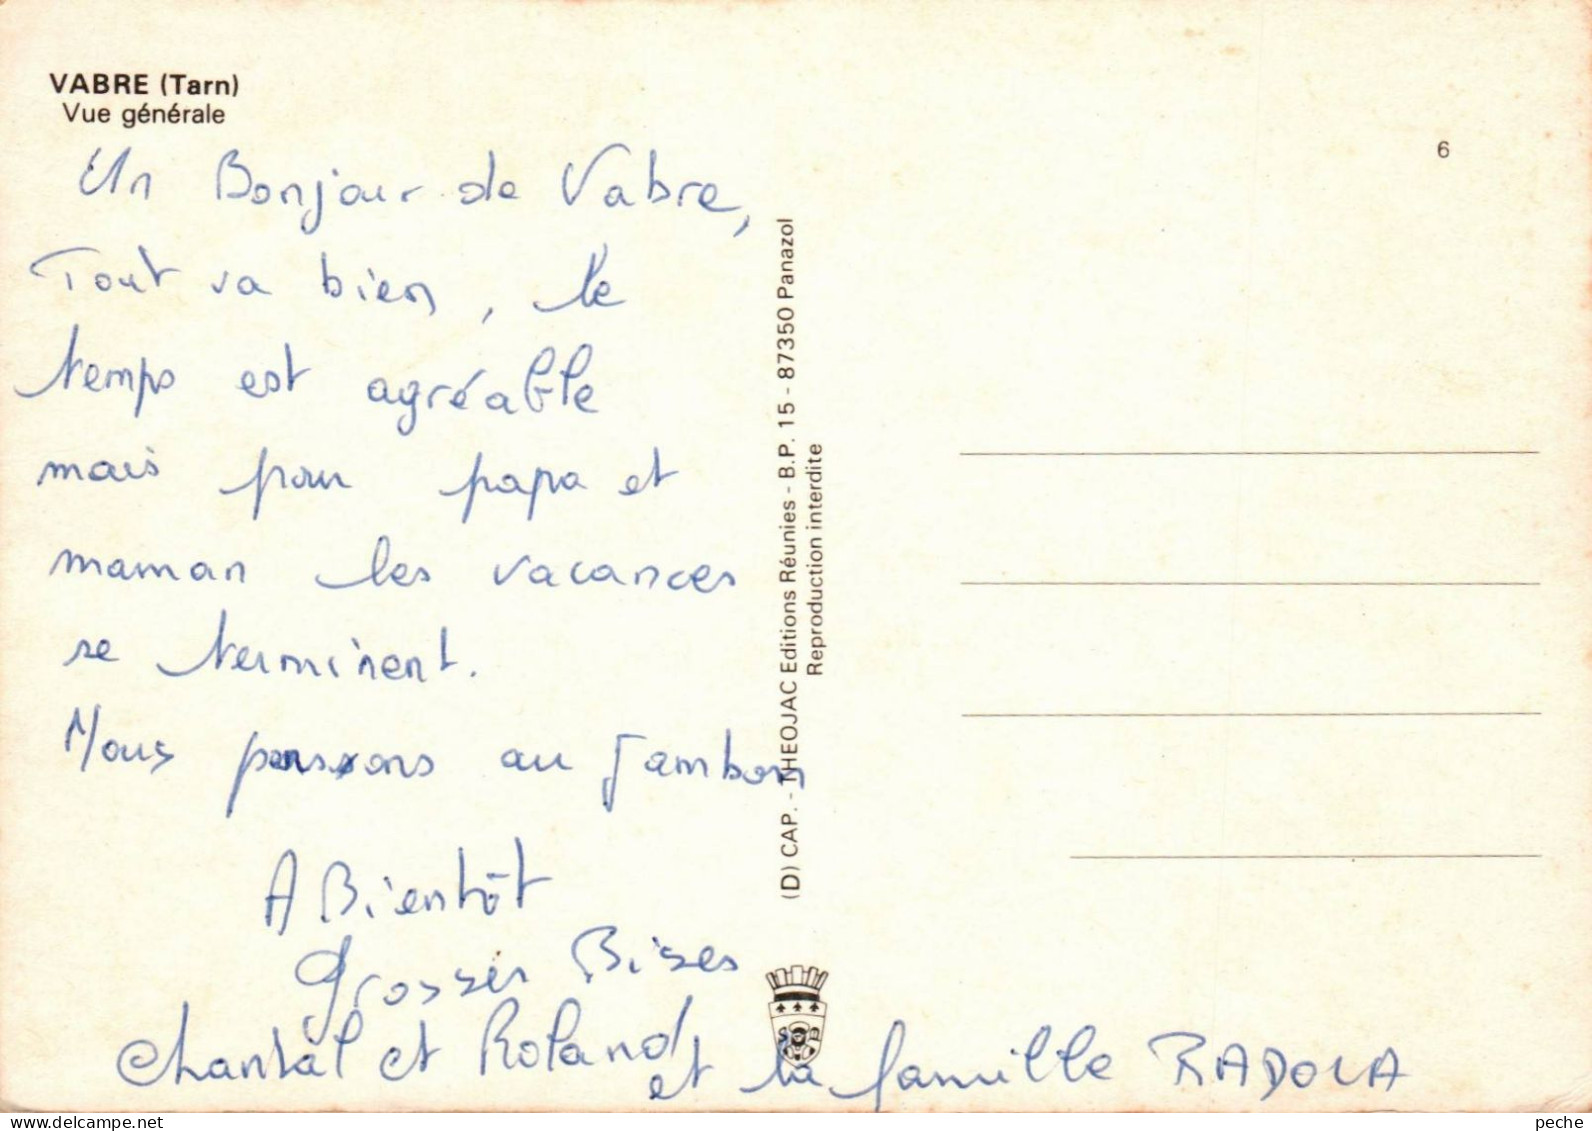 VABRE (Tarn)
Vue générale
6
Un Bonjour de Vabre,
Tout va bien, le
temps est agréable
mais pour papa et
maman les vacances
se terminent.
Nous pensons au Jambon
A Bientôt
Grosses Bises
Chantal et Roland
et la famille RADOLA
(D) CAP. - THEOJAC Editions Réunies - B.P. 15 - 87350 Panazol
Reproduction interdite
peche